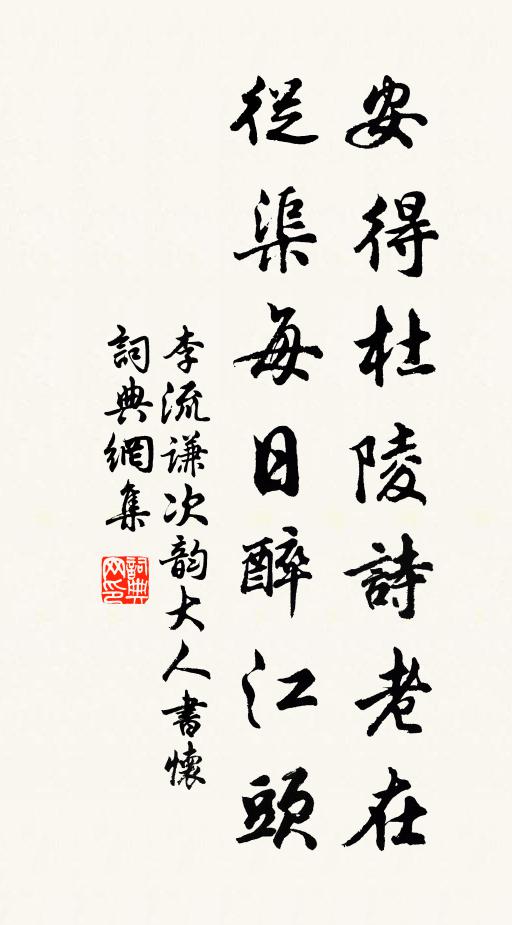 安得杜陵詩老在
從渠每日醉江頭
李流謙次韵大人書懷
詞典網集
詞典网印